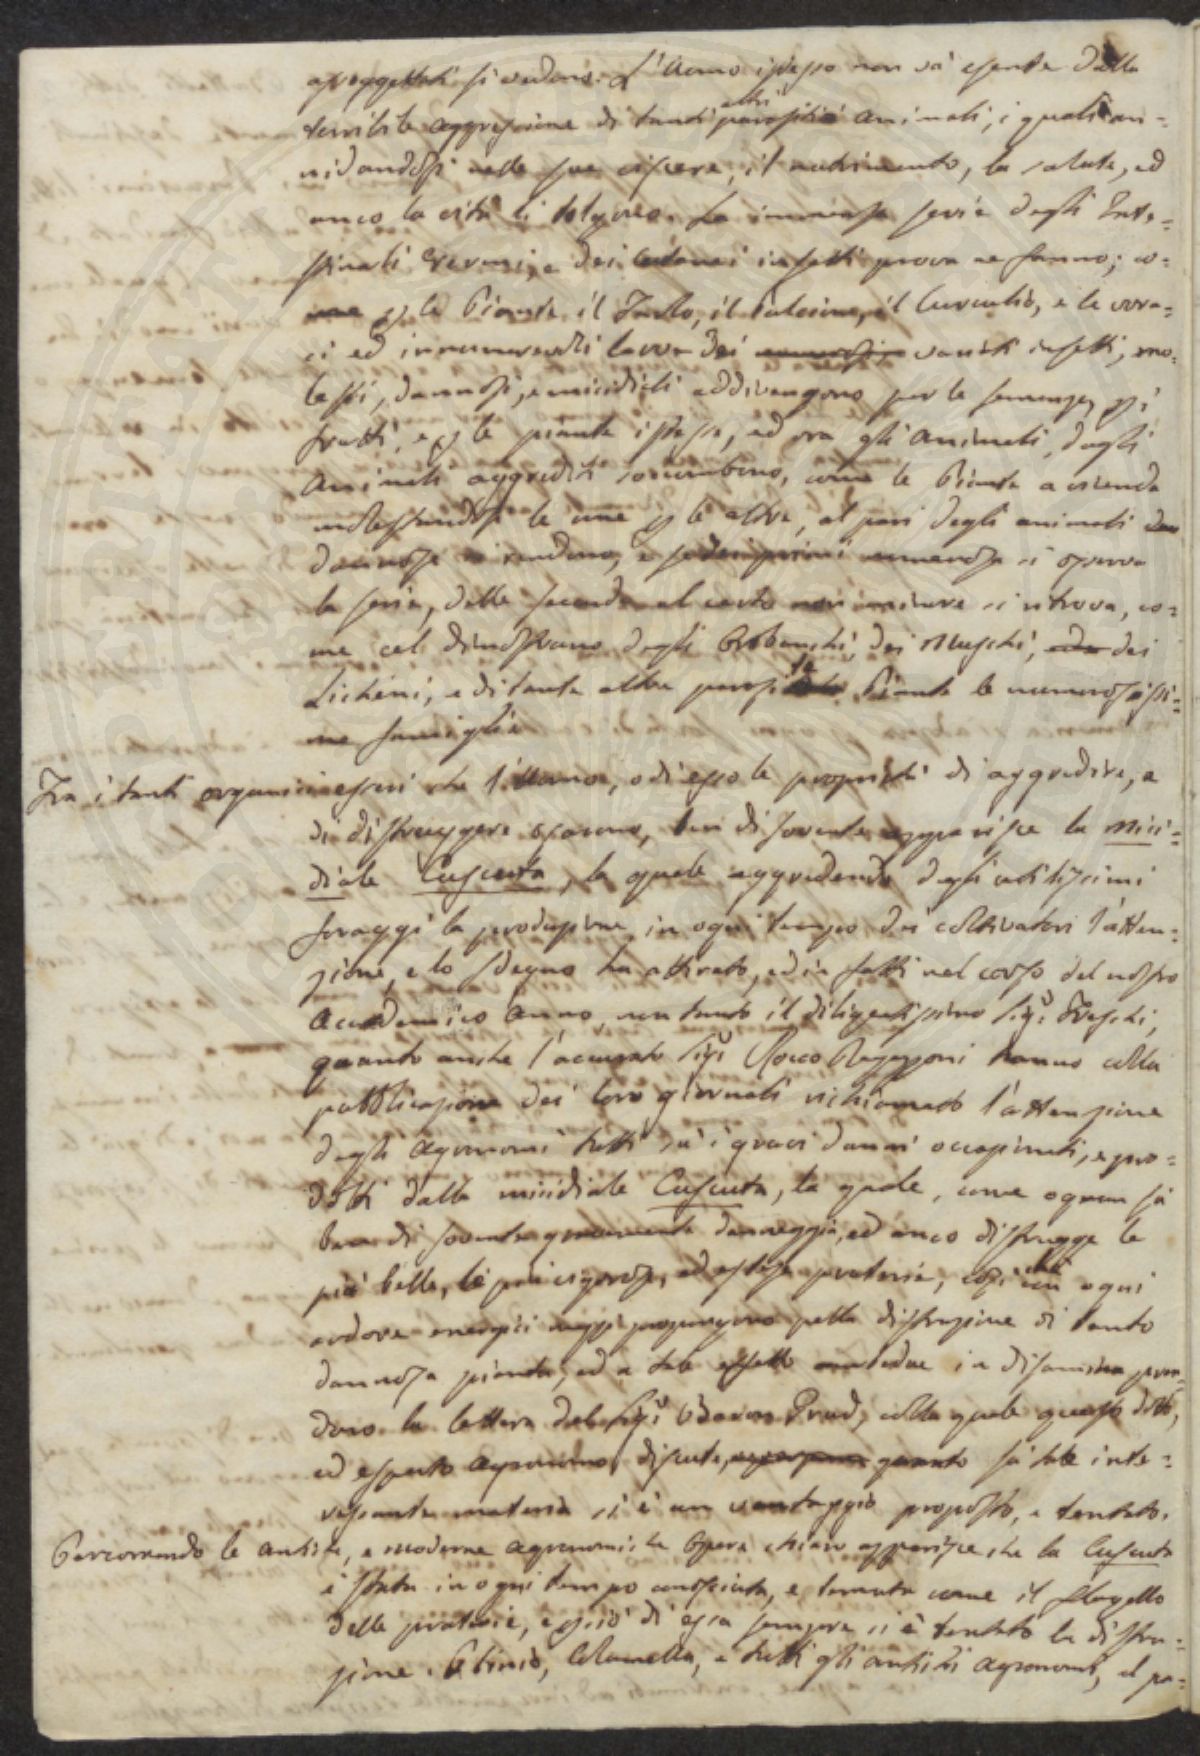 assoggettati si vedono. L'Uomo istesso non và esente dalla
terribile aggressione di tanti altri parassiti animali, i quali an-
nidandosi nelle sue viscere, il nutrimento, la salute, ed
anco la vità li tolgono. La immensa serie degli Inte-
stinali vermi, e dei cutanei insetti prova ne fanno; co-
me p le Piante il Tarlo, il Curculio, e le vora-
ci ed innumerevoli larve dei varii insetti, mo-
lesti, dannosi, e micidiali addivengono per le semenze, pi
frutti, e p le piante istesse, ed ora gli animali, dagli
animali aggrediti socumbono, come le Piante a vicenda
molestandosi le une p le altre, al pari degli animali
dannose si rendono, e se dei primi numerosa si osserva
la serie, delle seconde al certo non minore si ritrova, co-
me cel dimostrano degli Orobanchi, dei Muschi, dei
Licheni, e di tante altre parassite Piante le numerosissi-
me famiglie
Fra i tanti organici esseri che l'Uomo, od esso le proprietà di aggredire, e
di distruggere, ben di sovente apparisce la mici-
diale Cuscuta, la quale aggredendo degli utilissimi
foraggi la produzione in ogni tempo dei coltivatori l'atten-
zione, e lo sdegno ha attirato, ed in fatti nel corso del nostro
Accademico anno, non tanto il diligentissimo Sigr Freschi,
quanto anche l'accurato Sigr Rocco Ragazzoni hanno colla
pubblicazione dei loro giornali richiamato l'attenzione
degli agronomi tutti su i gravi danni occasionati, e pro-
dotti dalla micidiale Cuscuta, la quale, come ognun sà
ben di sovente gravemente danneggia, ed anco distrugge le
più belle, le più vigorose, ed estese praterie, così che ogni
ardore energici mezzi propongono pella distruzione di tanto
dannosa pianta, ed a tale effetto in disamina pren-
dono la lettera del Sigr Baron Crud, colla quale questo dotto,
ed esperto agronomo discute, quanto sù tale inte-
ressante materia si è con vantaggio proposto, e tentato.
Percorrendo le antiche, e moderne agronomiche Opere chiaro apparisce che la Cuscuta
è stata in ogni tempo conosciuta, e temuta come il flagello
delle praterie, e pciò di essa sempre si è tentato la distru-
zione. Plinio, Columella, e tutti gli antichi agronomi, al pa-